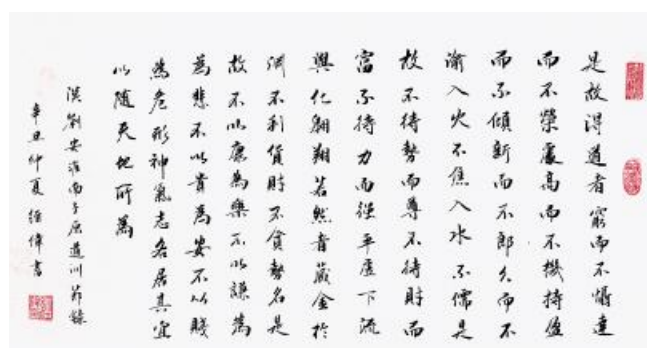 是故得道者窮而不懾達
而不榮處高而不機持盈
而不傾新而不郎久而不
渝入火不焦入水不儒是
故不待勢而尊不待財而
富不待力而强平虛下流
與化翺翔若然者藏金於
渊不利貨財不貪勢名是
故不以康為樂不以謙為
為悲不以貴為安不以賤
為危形神氣志各居其宜
以隨天地所為
漢劉安淮南子原道训節錄
辛丑仲夏經偉書